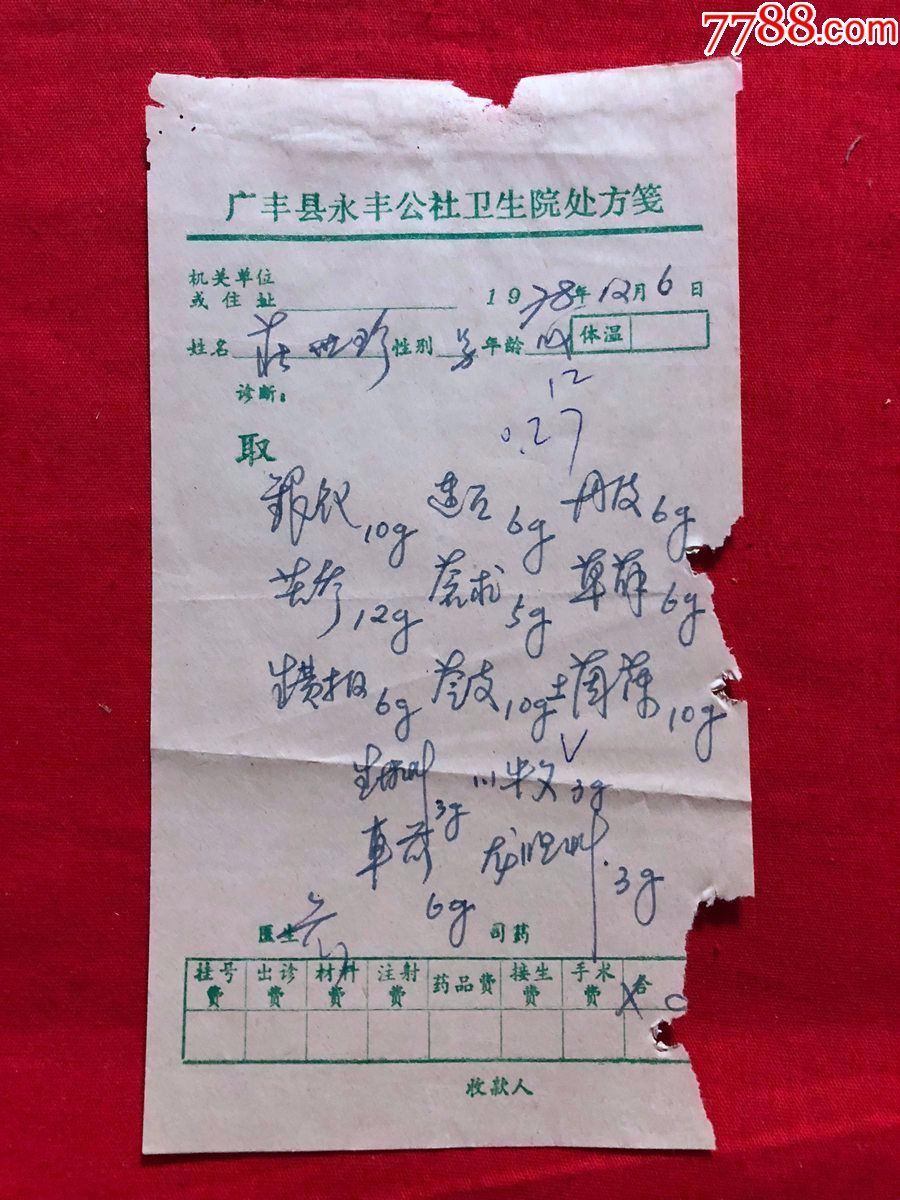 7788.com
广丰县永丰公社卫生院处方笺
机关单位
或住址 1978年12月6日
姓名 庄世珍 性别 年龄 体温
诊断：
12
0.27
取
银 10g 连 6g 丹皮 6g
苦参 12g 苍术 5g 草薢 6g
生黄柏 6g 苓皮 10g 土茯苓 10g
生 3g 川牛文 3g
车前 6g 龙胆 3g
医生 司药
挂号费 出诊费 材料费 注射费 药品费 接生费 手术费 合
收款人